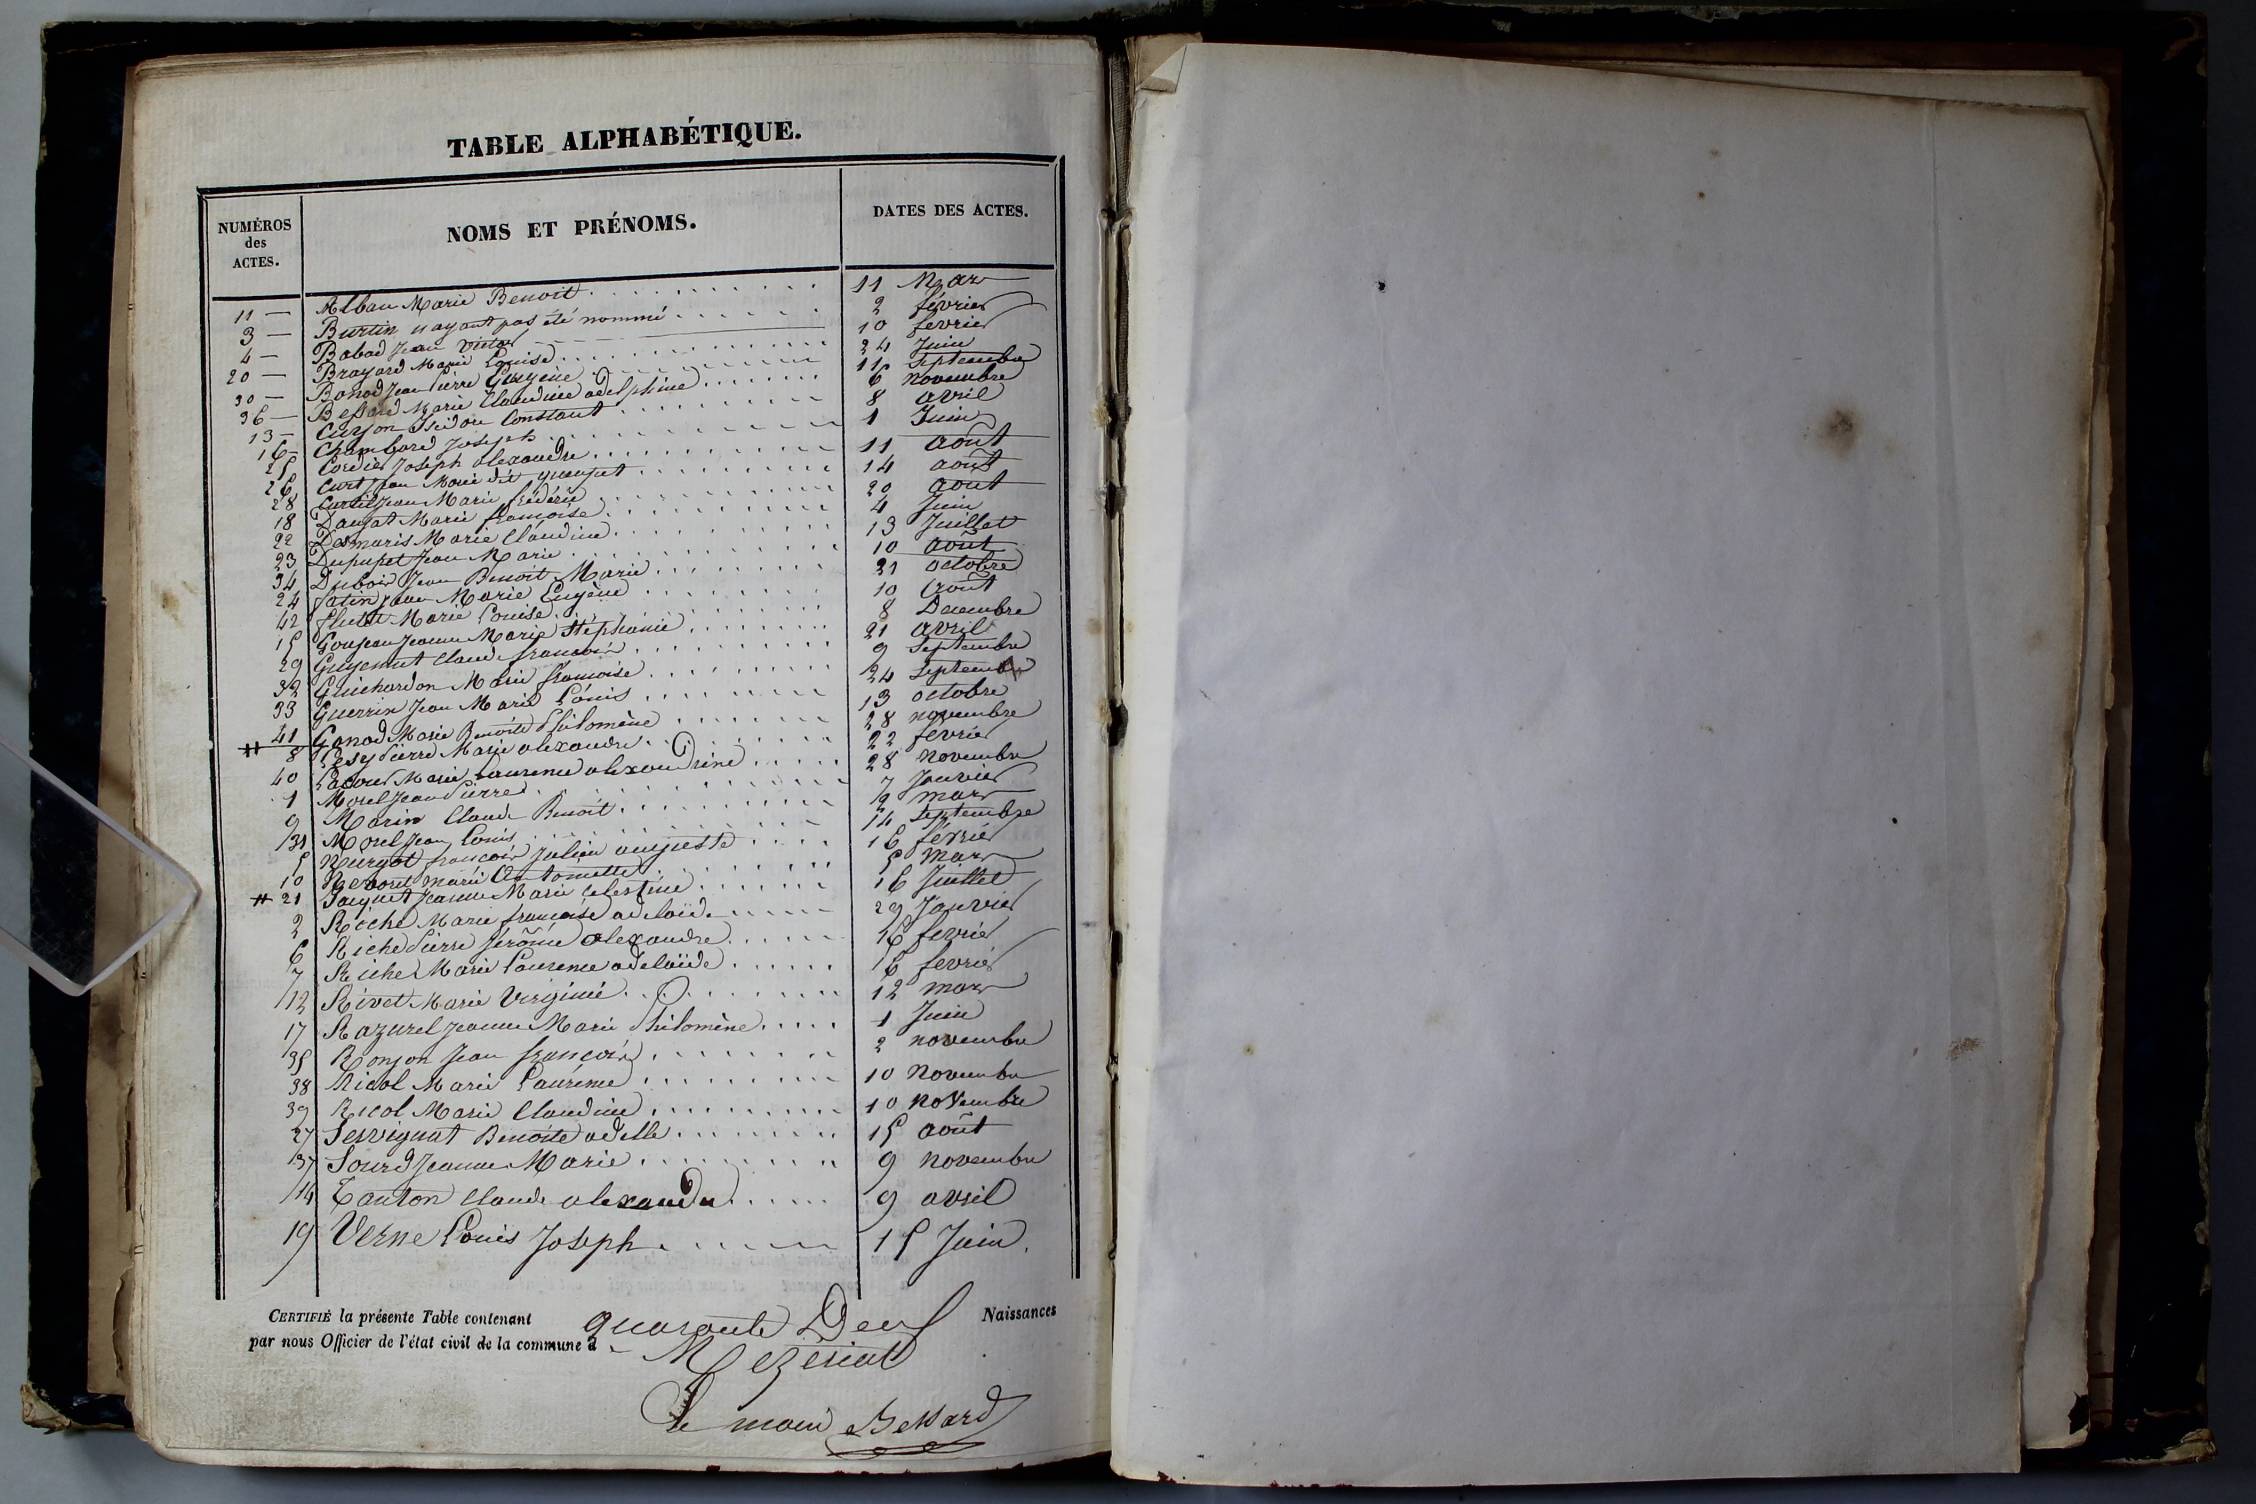 TABLE ALPHABÉTIQUE.
NUMÉROS
des
ACTES.
NOMS ET PRÉNOMS.
DATES DES ACTES.
11 — Alban Marie Benoit 11 Mars
3 — Burtin n'ayant pas été nommé 2 février
4 — Babad Jean Victor 10 fevrier
20 — Brayard Marie Louise 24 Juin
30 — Bonod Jean Pierre Eugène 11 Septembre
36 — Bessard Marie Claudine adelphine 6 novembre
13 — Curzon Isidore Constant 8 avril
16 — Chambard Joseph 1 Juin
25 Cordier Joseph alexandre 11 août
26 Curt Jean Marie dit 14 août
28 Curtil Jean Marie frédéric 20 aout
18 Daujat Marie françoise 4 Juin
22 Desmaris Marie Claudine 13 Juillet
23 Dupupet Jean Marie 10 août
34 Dubois Jean Benoit Marie 21 octobre
24 fatin Jean Marie Eugène 10 août
42 Marie Louise 8 Decembre
15 Goujeau Jeanne Marie Stéphanie 21 avril
29 Guyennet Claude françois 9 Septembre
32 Guichardon Marie françoise 24 Septembre
33 Guerrin Jean Marie Louis 13 octobre
41 Gonod Marie Benoite Philomène 28 novembre
# 8 Pierre Marie alexandre 22 fevrier
40 Marie Laurence alexandrine 28 novembre
1 Morel Jean Pierre 7 Janvier
9 Morin Claude Benoit 2 mars
31 Morel Jean Louis 14 Septembre
5 françois Julien auguste 16 février
10 Marie Antoinette 5 Mars
# 21 Paquet Jeanne Marie celestine 16 Juillet
2 Riche Marie françoise adelaïde 29 Janvier
6 Riche Pierre Jérôme alexandre 16 fevrier
7 Riche Marie Laurence adelaïde 16 fevrier
12 Rivet Marie Virginie 12 mars
17 Razurel Jeanne Marie Philomène 1 Juin
35 Ronjon Jean françois 2 novembre
38 Ricol Marie Laurence 10 Novembre
39 Ricol Marie Claudine 10 Novembre
27 Servignat Benoite adelle 15 août
37 Sourd Jeanne Marie 9 novembre
14 Tanton Claude alexandre 9 avril
19 Verne Louis Joseph 15 Juin.
CERTIFIÉ la présente Table contenant quarante Deux Naissances
par nous Officier de l'état civil de la commune d Mezériat
Le maire Bessard